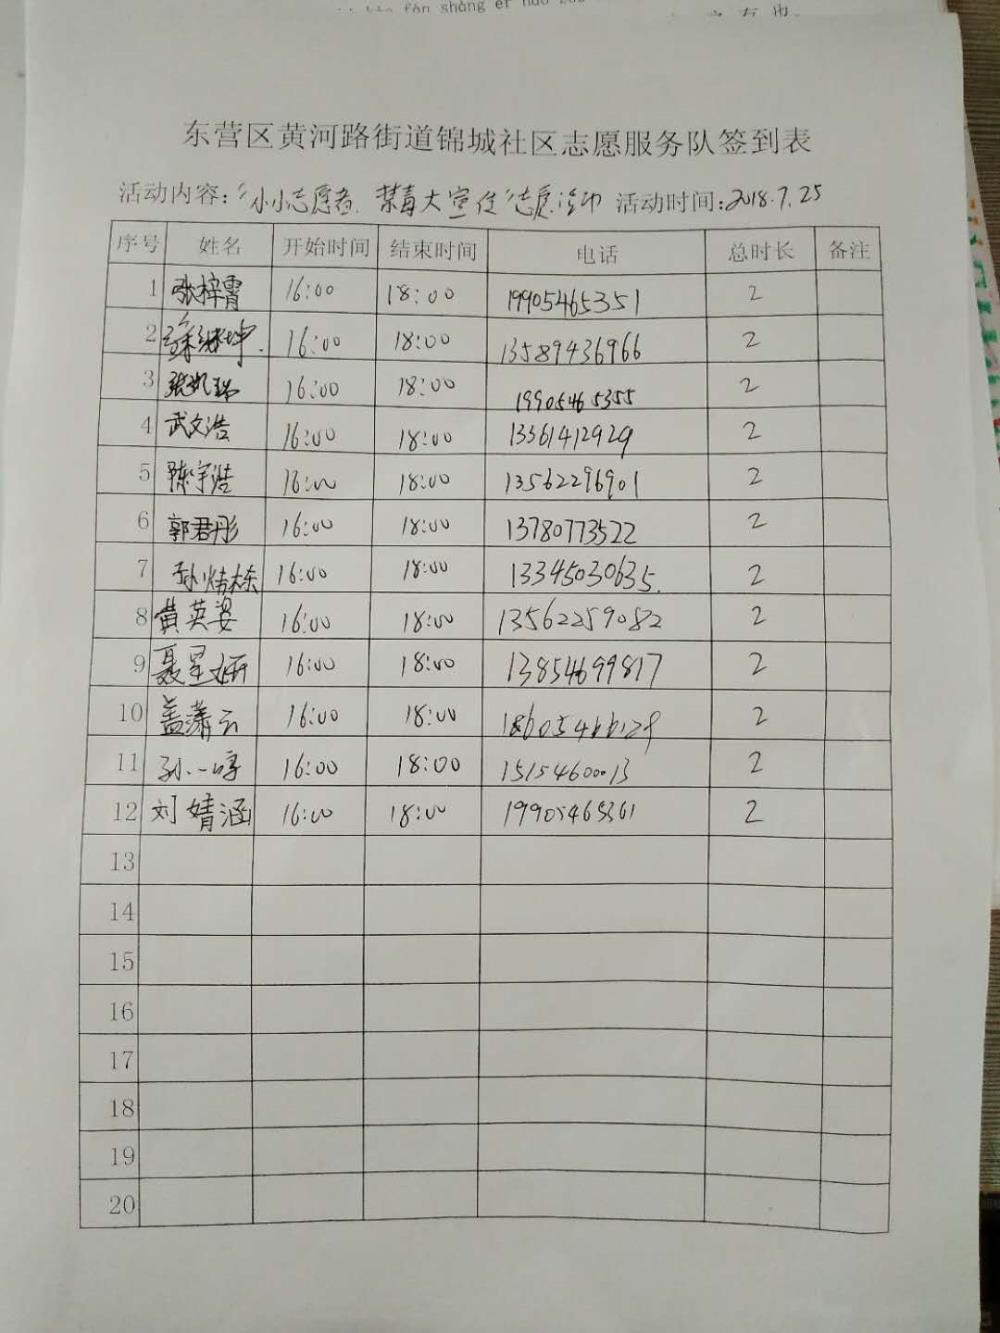 fàn shàng ér hào
东营区黄河路街道锦城社区志愿服务队签到表
活动内容:“小小志愿者 禁毒大宣传”志愿活动 活动时间:2018.7.25
序号 姓名 开始时间 结束时间 电话 总时长 备注
1 张梓霄 16:00 18:00 19905465351 2
2 16:00 18:00 13589436966 2
3 16:00 18:00 19905465355 2
4 武文浩 16:00 18:00 13361412929 2
5 陈宇浩 16:00 18:00 13562296901 2
6 郭君彤 16:00 18:00 13780773522 2
7 孙炜栋 16:00 18:00 13345030635 2
8 黄英姿 16:00 18:00 13562259082 2
9 聂星妍 16:00 18:00 13854699817 2
10 盖潇云 16:00 18:00 2
11 孙一 16:00 18:00 15154600013 2
12 刘婧涵 16:00 18:00 19905465361 2
13
14
15
16
17
18
19
20